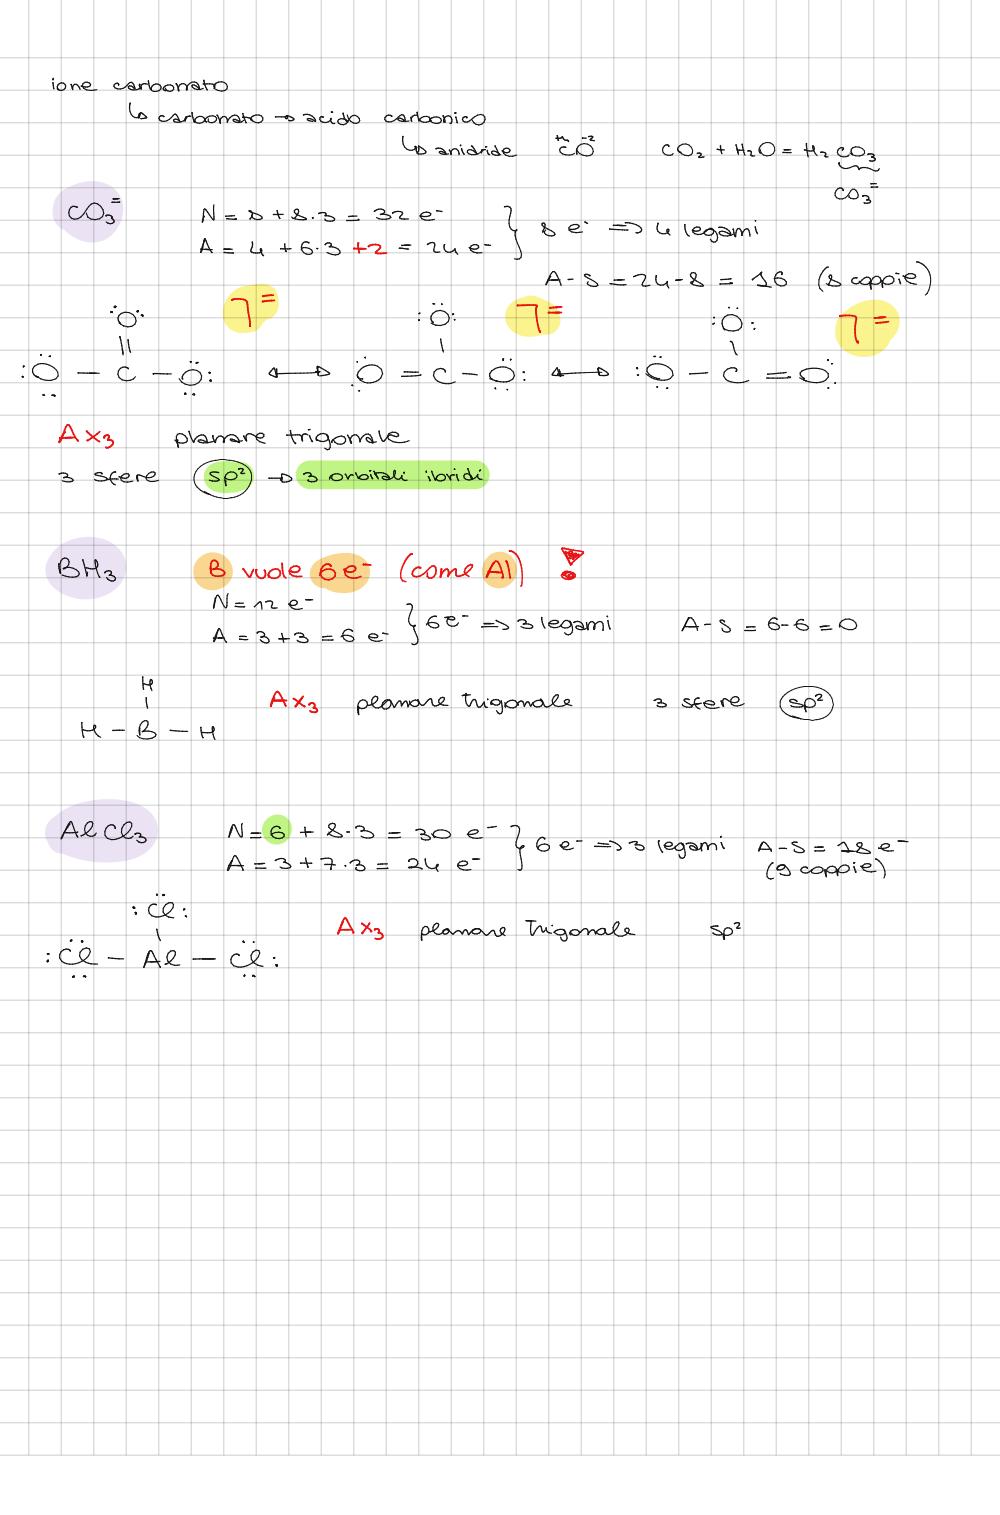 ione carbonato
↳ carbonato → acido carbonico
↳ anidride C⁺⁴O⁻² CO₂ + H₂O = H₂CO₃
CO₃⁼
CO₃⁼ N = 8 + 8·3 = 32 e⁻
A = 4 + 6·3 +2 = 24 e⁻ } 8 e⁻ => 4 legami
A-S = 24-8 = 16 (8 coppie)
⌉⁼ ⌉⁼ ⌉⁼
:Ö: :Ö: :Ö:
|| | |
:Ö – C – Ö: ↔ Ö = C – Ö: ↔ :Ö – C = O:
AX₃ planare trigonale
3 sfere sp² → 3 orbitali ibridi
BH₃ B vuole 6e⁻ (come Al) !
N = 12 e⁻
A = 3+3 = 6 e⁻ } 6e⁻ => 3 legami A-S = 6-6 = 0
H
|
AX₃ planare trigonale 3 sfere sp²
H – B – H
AlCl₃ N = 6 + 8·3 = 30 e⁻
A = 3 + 7·3 = 24 e⁻ } 6 e⁻ => 3 legami A-S = 18 e⁻
(9 coppie)
:Cl:
|
AX₃ planare trigonale sp²
:Cl – Al – Cl: